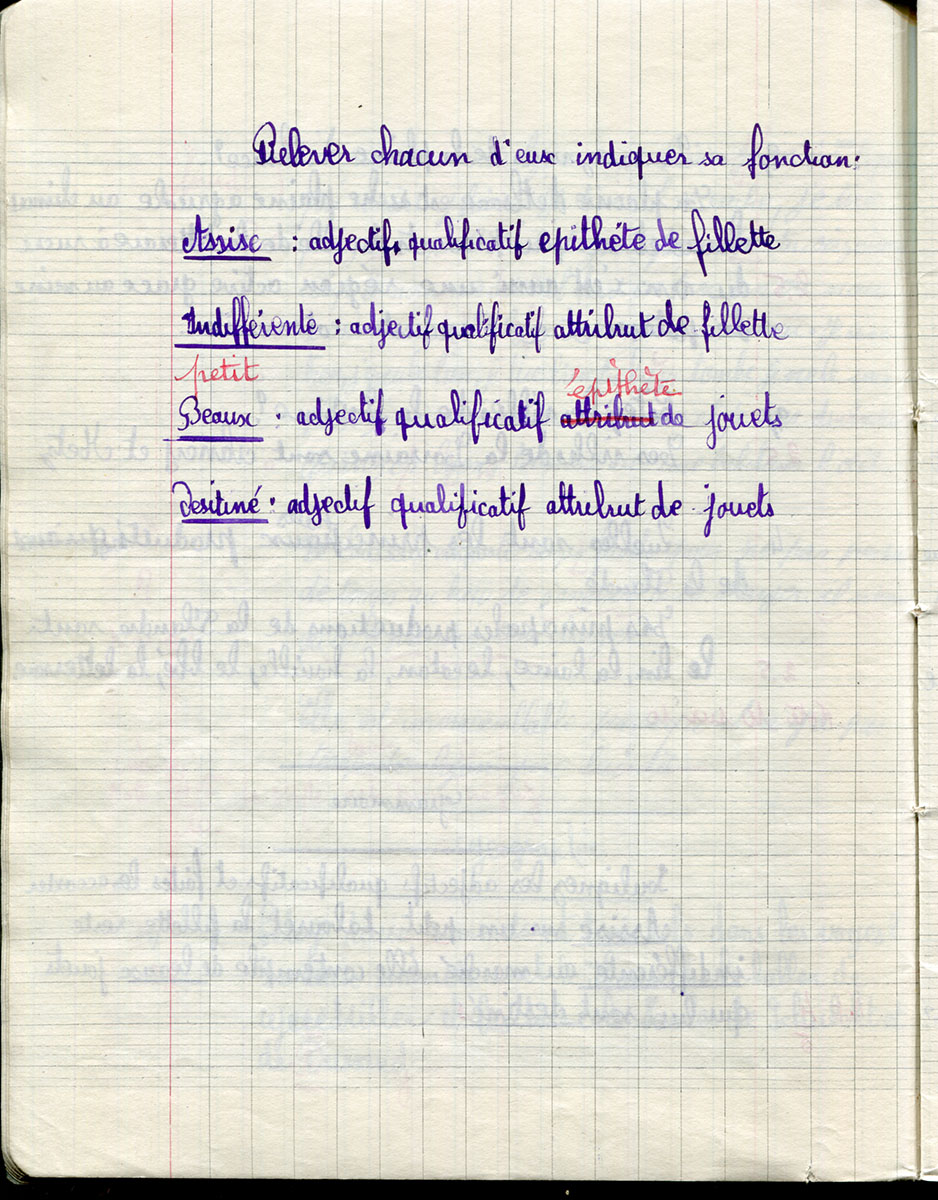 Relever chacun d'eux indiquer sa fonction.
Assise : adjectifs qualificatif epithéte de fillette
Indifférente : adjectif qualificatif attribut de fillette
petit
épithète
Beaux : adjectif qualificatif attribut de jouets
Destiné : adjectif qualificatif attribut de jouets